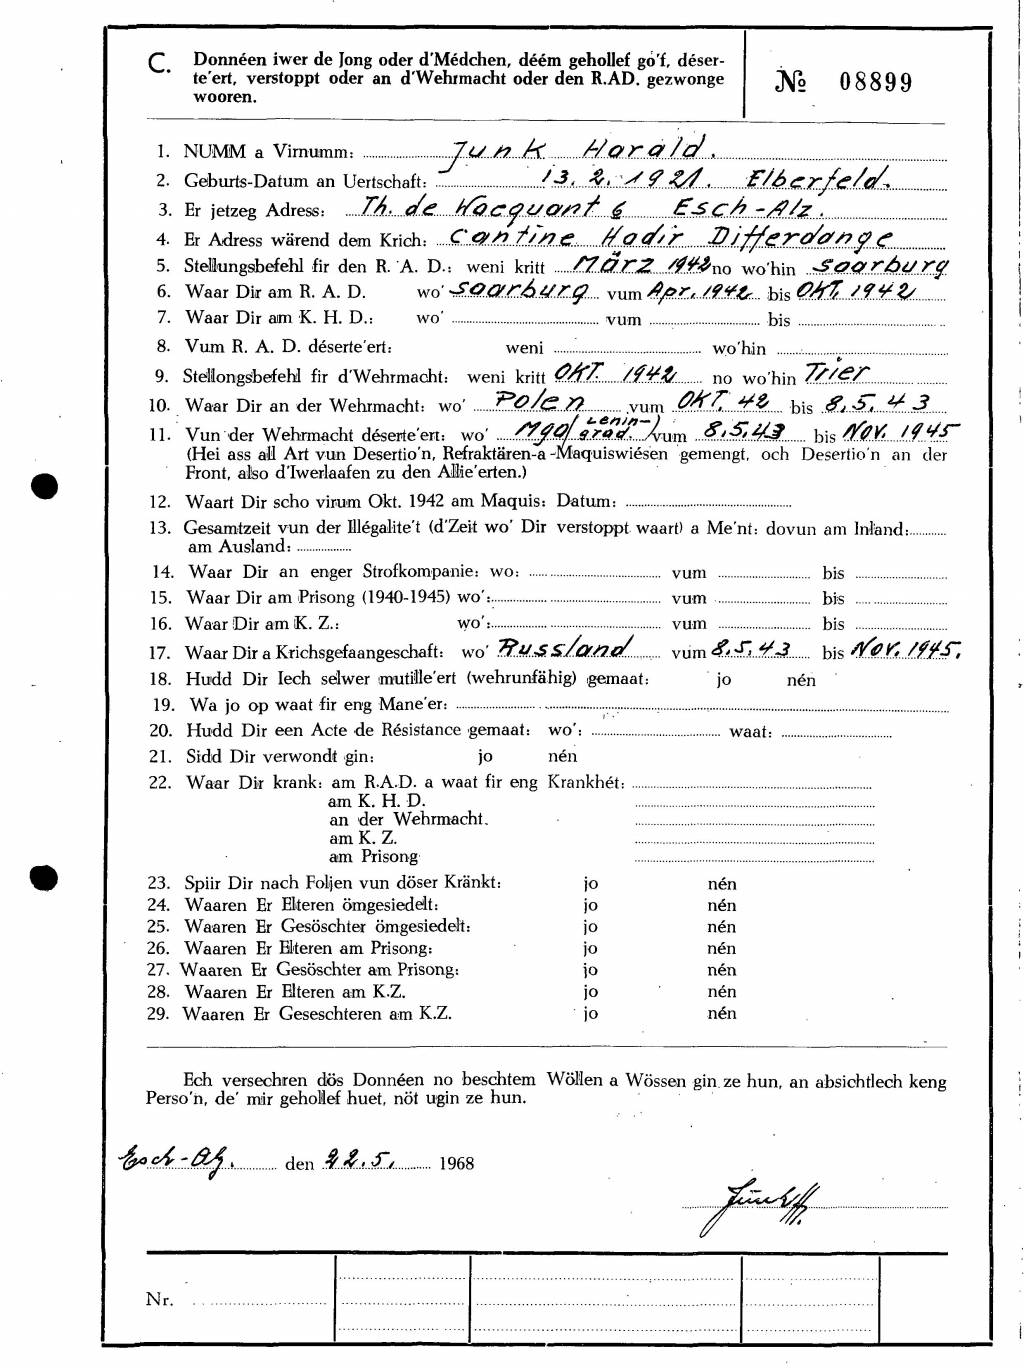 C. Donnéen iwer de Jong oder d'Médchen, déém gehollef go'f, déser-
te'ert, verstoppt oder an d'Wehrmacht oder den R.AD. gezwonge
wooren.
№ 08899
1. NUMM a Virnumm: Junk Harald.
2. Geburts-Datum an Uertschaft: 13. 2. 1921. Elberfeld.
3. Er jetzeg Adress: Th. de Wacquant 6 Esch-Alz.
4. Er Adress wärend dem Krich: Cantine Hadir Differdange
5. Stellungsbefehl fir den R. A. D.: weni kritt März 1942 no wo'hin Saarburg
6. Waar Dir am R. A. D. wo' Saarburg vum Apr. 1942 bis OKT. 1942
7. Waar Dir am K. H. D.: wo' vum bis
8. Vum R. A. D. déserte'ert: weni wo'hin
9. Stellongsbefehl fir d'Wehrmacht: weni kritt OKT. 1942 no wo'hin Trier
10. Waar Dir an der Wehrmacht: wo' Polen vum OKT. 42 bis 8. 5. 43
11. Vun der Wehrmacht déserte'ert: wo' Mga (Lenin-grad.) vum 8.5.43 bis Nov. 1945
(Hei ass all Art vun Desertio'n, Refraktären-a -Maquiswiésen gemengt, och Desertio'n an der
Front, also d'Iwerlaafen zu den Allie'erten.)
12. Waart Dir scho virum Okt. 1942 am Maquis: Datum:
13. Gesamtzeit vun der Illégalite't (d'Zeit wo' Dir verstoppt waart) a Me'nt: dovun am Inland:
am Ausland:
14. Waar Dir an enger Strofkompanie: wo: vum bis
15. Waar Dir am Prisong (1940-1945) wo': vum bis
16. Waar Dir am K. Z.: wo': vum bis
17. Waar Dir a Krichsgefaangeschaft: wo' Russland vum 8.5.43 bis Nov. 1945.
18. Hudd Dir Iech selwer mutille'ert (wehrunfähig) gemaat: jo nén
19. Wa jo op waat fir eng Mane'er:
20. Hudd Dir een Acte de Résistance gemaat: wo': waat:
21. Sidd Dir verwondt gin: jo nén
22. Waar Dir krank: am R.A.D. a waat fir eng Krankhét:
am K. H. D.
an der Wehrmacht.
am K. Z.
am Prisong
23. Spiir Dir nach Foljen vun döser Kränkt: jo nén
24. Waaren Er Elteren ömgesiedelt: jo nén
25. Waaren Er Gesöschter ömgesiedelt: jo nén
26. Waaren Er Elteren am Prisong: jo nén
27. Waaren Er Gesöschter am Prisong: jo nén
28. Waaren Er Elteren am K.Z. jo nén
29. Waaren Er Geseschteren am K.Z. jo nén
Ech versechren dös Donnéen no beschtem Wöllen a Wössen gin ze hun, an absichtlech keng
Perso'n, de' mir gehollef huet, nöt ugin ze hun.
Esch-Alz. den 22.5. 1968
Nr.